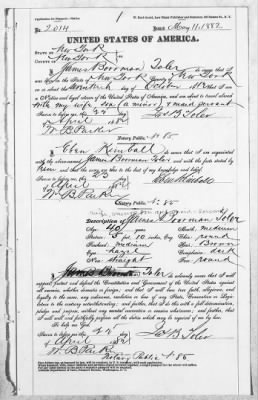 No. 2014 Issued May 11, 1882
UNITED STATES OF AMERICA.
STATE OF New York
COUNTY OF New York
I, James Boorman Toler do swear that I was
born in the State of New York
day of October
a Native and Loyal citizen of the United States of America, and am about to travel abroad
with my wife, son (a minor) & maid servant
Sworn to before me, this 22 day
of April 1882 Jas B Toler
W B Parker
Notary Public No 85
I, Eben Kimball do swear that I am acquainted
with the above-named James Boorman Toler and with the facts stated by
him and that the same are true to the best of my knowledge and belief.
Sworn to before me, this 22 day
of April 1882
W B Parker
Notary Public No 85
Description of James Boorman Toler
Age: 40 years Mouth: medium
Stature: 5 feet 10 inches, Eng. Chin: round
Forehead: medium Hair: Brown
Eyes: hazel Complexion: dark
Nose: straight Face: round
I, James Boorman Toler do solemnly swear that I will
support, protect and defend the Constitution and Government of the United States against
all enemies, whether domestic or foreign; and that I will bear true faith, allegiance, and
loyalty to the same, any ordinance, resolution or law of any State, Convention or Legis-
lature to the contrary notwithstanding; and further, that I do this with a full determination,
pledge and purpose, without any mental reservation or evasion whatsoever; and further,
that I will well and faithfully perform all the duties which may be required of me by law.
So help me God.
Sworn to before me, this 22 day
of April 1882 Jas B Toler
W B Parker
Notary Public No 85